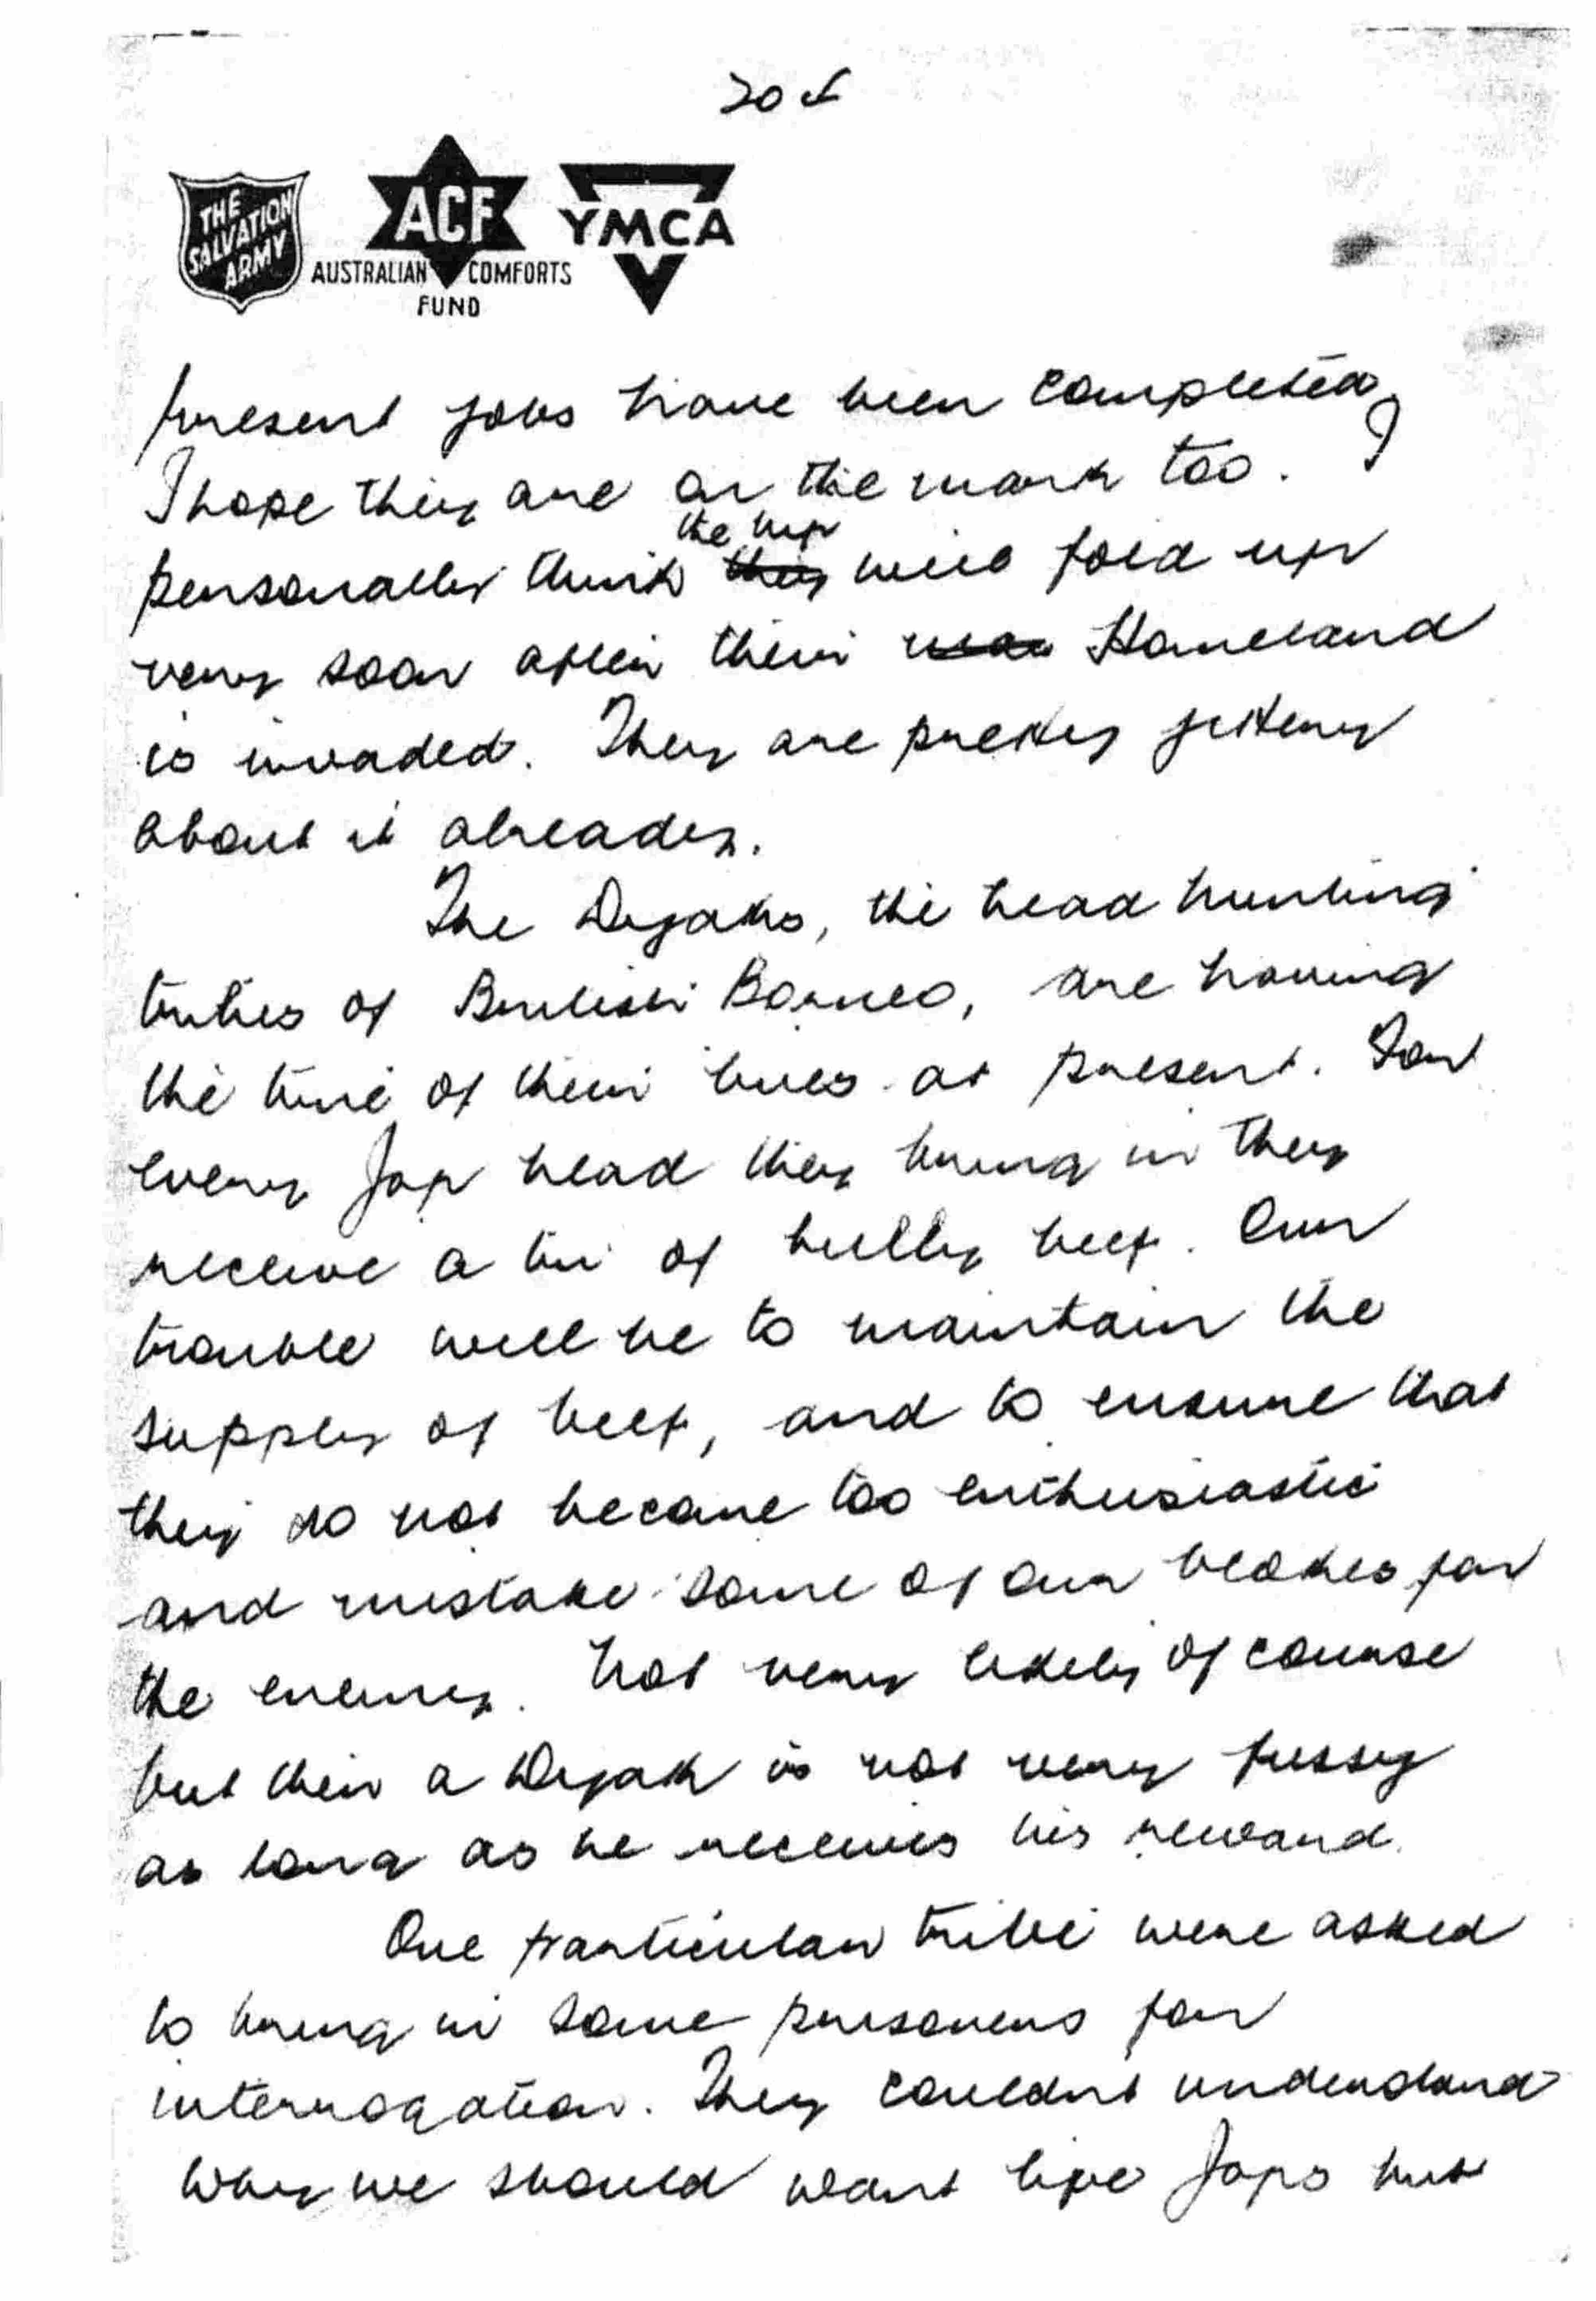 THE
SALVATION
ARMY
ACF
AUSTRALIAN COMFORTS
FUND
YMCA
present jobs have been completed,
I hope they are on the mark too. I
the Nip
personally think they will fold up
very soon after their Homeland
is invaded. They are pretty jittery
about it already.
The Dyaks, the head hunting
tribes of British Borneo, are having
the time of their lives at present. For
every Jap head they bring in they
receive a tin of bully beef. Our
trouble will be to maintain the
supply of beef, and to ensure that
they do not become too enthusiastic
and mistake some of our blokes for
the enemy. Not very likely of course
but then a Dyak is not very fussy
as long as he receives his reward.
One particular tribe were asked
to bring in some prisoners for
interrogation. They couldnt understand
why we should want live Japs but